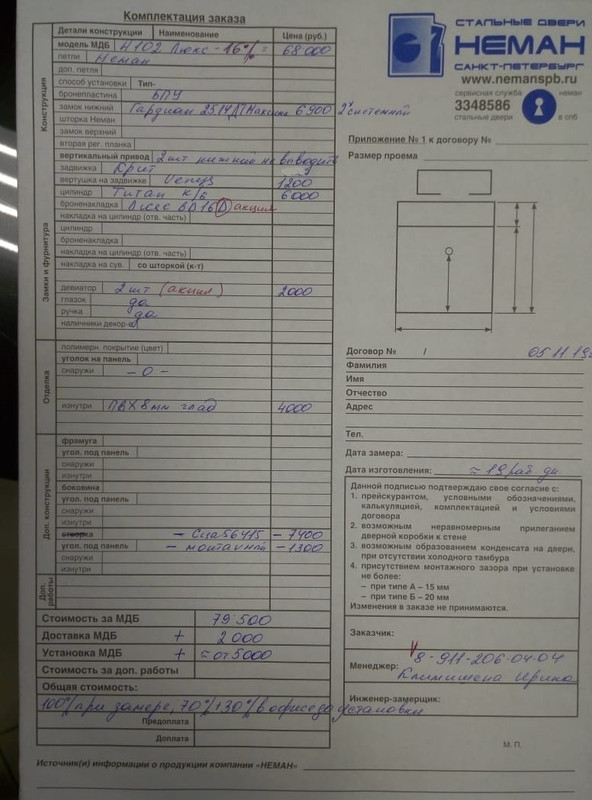 Комплектация заказа
Детали конструкции Наименование Цена (руб.)
Конструкция
модель МДБ Н102 Люкс -16% = 68 000
петли Неман
доп. петля
способ установки Тип-
бронепластина БПУ
замок нижний Гардиан 6900 2х системный
шторка Неман
замок верхний
вторая рег. планка
вертикальный привод 2 шт нижний не выводить
Замки и фурнитура
задвижка Крит
вертушка на задвижке 1200
цилиндр Титан к/в 6000
броненакладка Люкс акция
накладка на цилиндр (отв. часть)
цилиндр
броненакладка
накладка на цилиндр (отв. часть)
накладка на сув. со шторкой (к-т)
девиатор 2 шт (акция) 2000
глазок да
ручка да
наличники декор-е
Отделка
полимерн. покрытие (цвет)
уголок на панель
снаружи -0-
изнутри ПВХ 8мм глад 4000
Доп. конструкции
фрамуга
угол. под панель
снаружи
изнутри
боковина
угол. под панель
снаружи
изнутри
створка -7400
угол. под панель - монтажной -1300
снаружи
изнутри
Доп. работы
Стоимость за МДБ 79 500
Доставка МДБ + 2 000
Установка МДБ + = от 5000
Стоимость за доп. работы
Общая стоимость:
100% при замере, 70% +30% в офисе до установки
Предоплата
Доплата
Источник(и) информации о продукции компании «НЕМАН»
СТАЛЬНЫЕ ДВЕРИ
НЕМАН
САНКТ-ПЕТЕРБУРГ
www.nemanspb.ru
сервисная служба неман
3348586
стальные двери в спб
Приложение № 1 к договору №
Размер проема
Договор № / 05 11 19
Фамилия
Имя
Отчество
Адрес
Тел.
Дата замера:
Дата изготовления: ≈ 19 раб дн
Данной подписью подтверждаю свое согласие с:
1. прейскурантом, условными обозначениями, калькуляцией, комплектацией и условиями договора
2. возможным неравномерным прилеганием дверной коробки к стене
3. возможным образованием конденсата на двери, при отсутствии холодного тамбура
4. присутствием монтажного зазора при установке не более:
– при типе А – 15 мм
– при типе Б – 20 мм
Изменения в заказе не принимаются.
Заказчик:
Менеджер: 8-911-206-04-04
Ирина
Инженер-замерщик:
М. П.